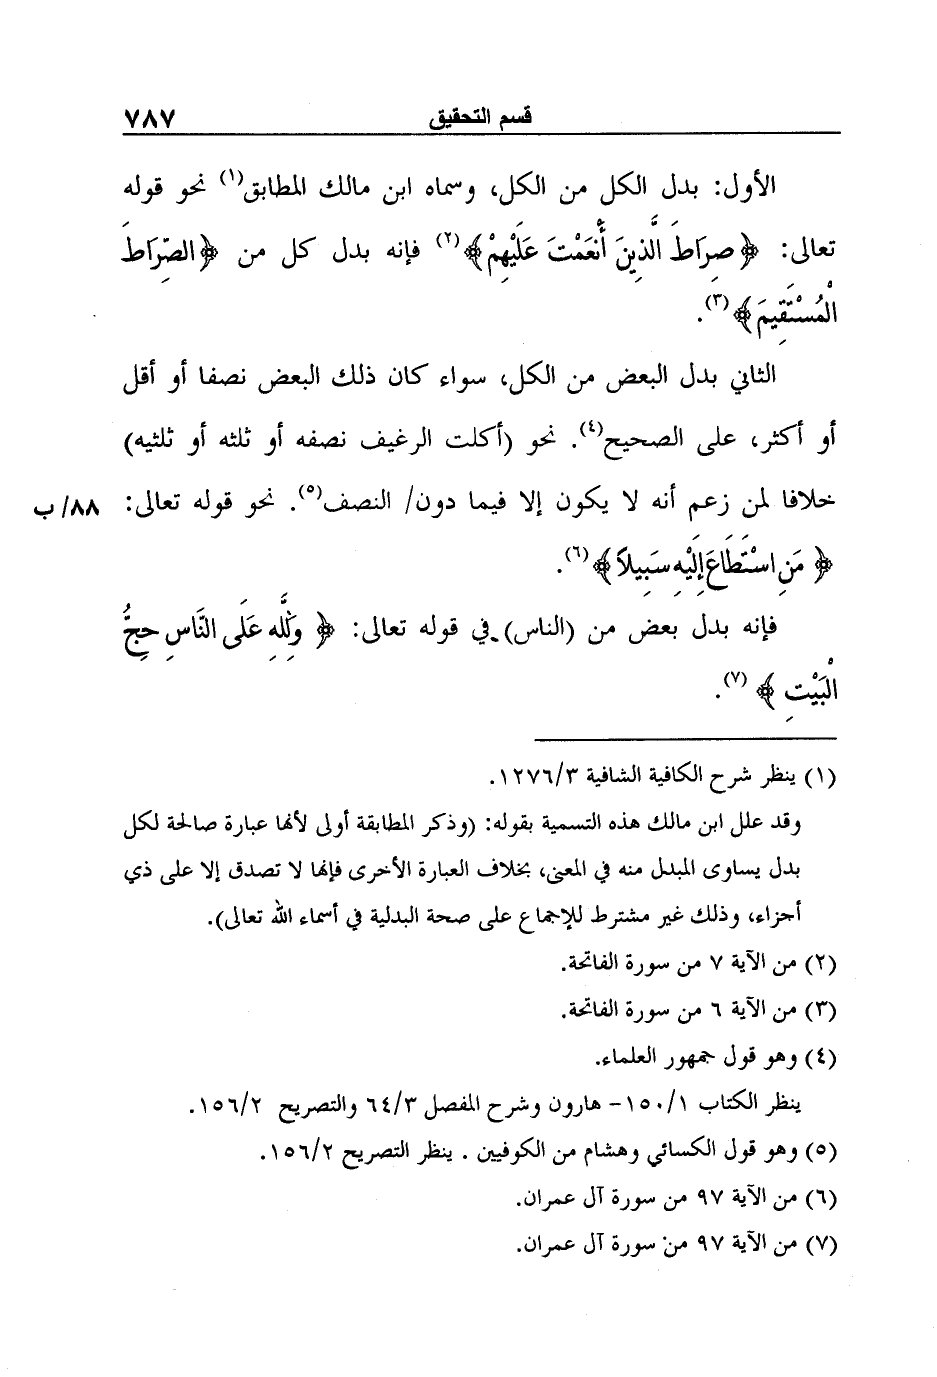 قسم التحقيق ٧٨٧
الأول: بدل الكل من الكل، وسماه ابن مالك المطابق(١) نحو قوله
تعالى: ﴿صِرَاطَ الَّذِينَ أَنْعَمْتَ عَلَيْهِمْ﴾(٢) فإنه بدل كل من ﴿الصِّرَاطَ
الْمُسْتَقِيمَ﴾(٣).
الثاني بدل البعض من الكل، سواء كان ذلك البعض نصفا أو أقل
أو أكثر، على الصحيح(٤). نحو (أكلت الرغيف نصفه أو ثلثه أو ثلثيه)
خلافا لمن زعم أنه لا يكون إلا فيما دون/ النصف(٥). نحو قوله تعالى: ٨٨/ ب
﴿ مَنِ اسْتَطَاعَ إِلَيْهِ سَبِيلاً﴾(٦).
فإنه بدل بعض من (الناس) في قوله تعالى: ﴿ وَلِلَّهِ عَلَى النَّاسِ حِجُّ
الْبَيْتِ ﴾(٧).
(١) ينظر شرح الكافية الشافية ١٢٧٦/٣.
وقد علل ابن مالك هذه التسمية بقوله: (وذكر المطابقة أولى لأنها عبارة صالحة لكل
بدل يساوى المبدل منه في المعنى، بخلاف العبارة الأخرى فإنها لا تصدق إلا على ذي
أجزاء، وذلك غير مشترط للإجماع على صحة البدلية في أسماء الله تعالى).
(٢) من الآية ٧ من سورة الفاتحة.
(٣) من الآية ٦ من سورة الفاتحة.
(٤) وهو قول جمهور العلماء.
ينظر الكتاب ١٥٠/١- هارون وشرح المفصل ٦٤/٣ والتصريح ١٥٦/٢.
(٥) وهو قول الكسائي وهشام من الكوفيين . ينظر التصريح ١٥٦/٢.
(٦) من الآية ٩٧ من سورة آل عمران.
(٧) من الآية ٩٧ من سورة آل عمران.